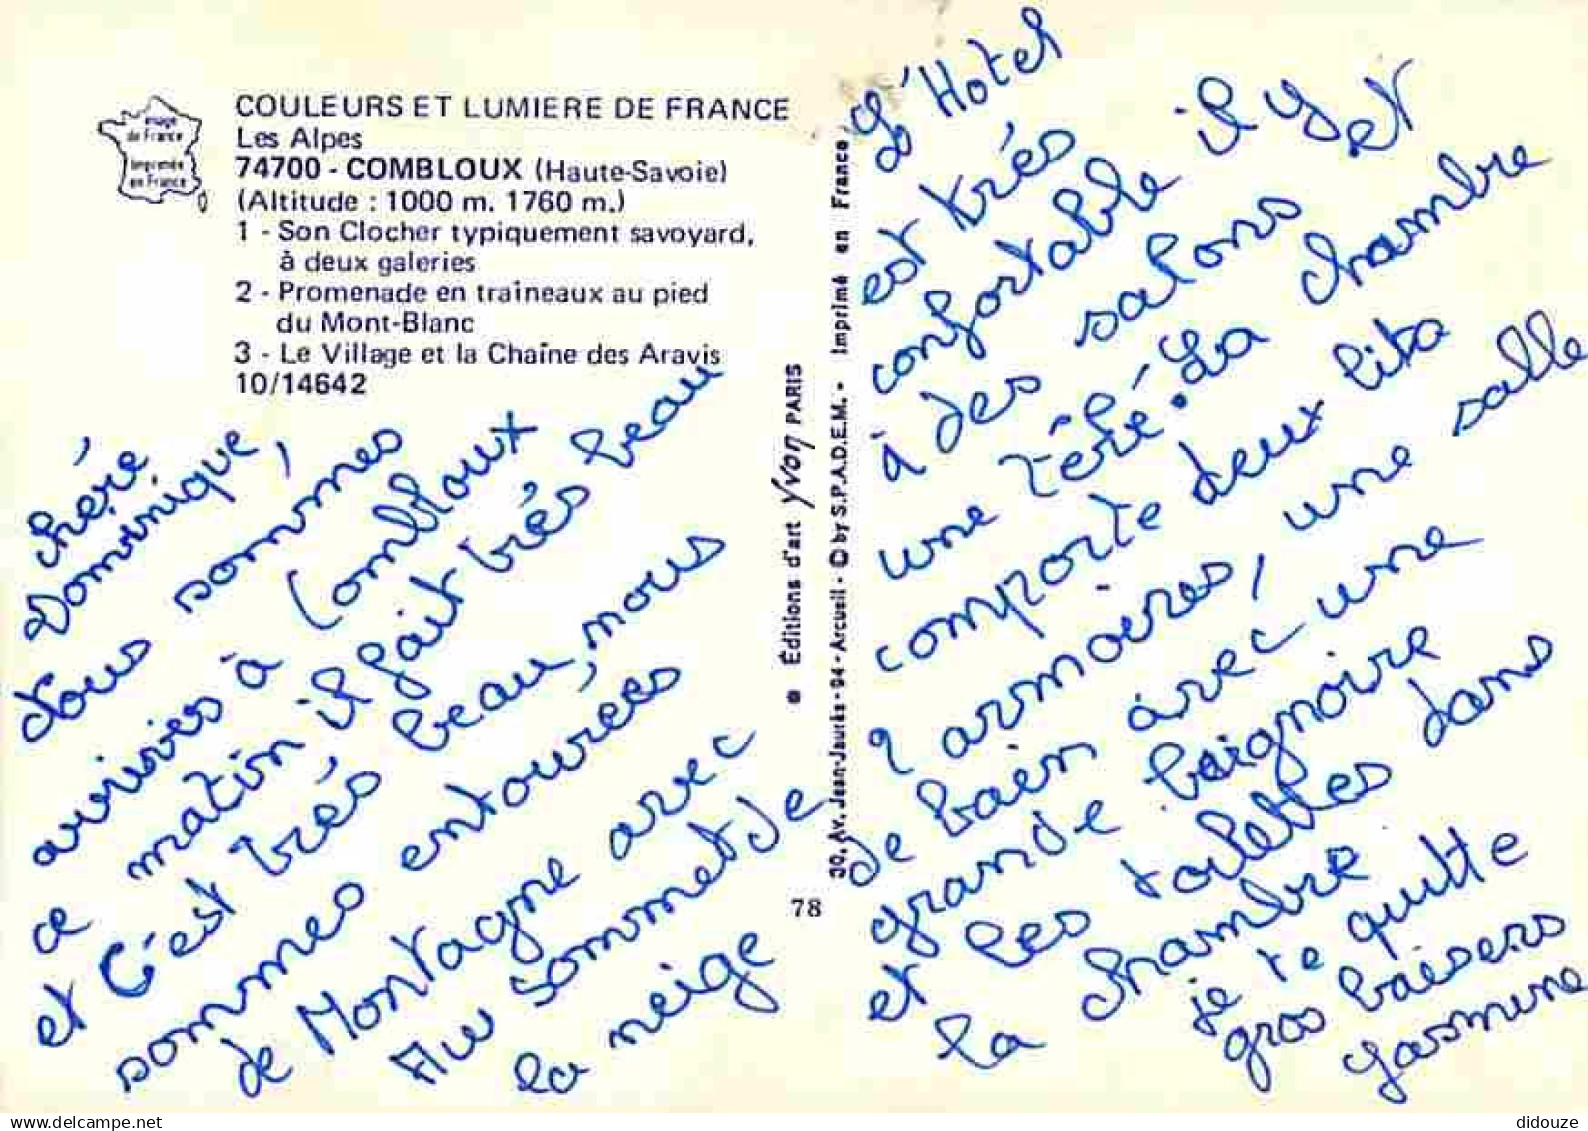 Image
de France
Imprimée
en France
COULEURS ET LUMIERE DE FRANCE
Les Alpes
74700 - COMBLOUX (Haute-Savoie)
(Altitude : 1000 m. 1760 m.)
1 - Son Clocher typiquement savoyard,
à deux galeries
2 - Promenade en traîneaux au pied
du Mont-Blanc
3 - Le Village et la Chaîne des Aravis
10/14642
chère
Dominique,
Nous sommes
arrivés à Combloux
ce matin il fait très beau
et C'est très beau, nous
sommes entourées
de Montagne avec
Au sommet de
la neige
Éditions d'art Yvon PARIS
30, Av. Jean-Jaurès - 94 - Arcueil - © by S.P.A.D.E.M. - Imprimé en France
78
L'Hotel
est très
confortable il y
à des salons et
une télé. La chambre
comporte deux lits
2 armoires, une salle
de bain avec une
grande baignoire
et les toilettes dans
la chambre
je te quitte
gros baisers
Yasmine
didouze